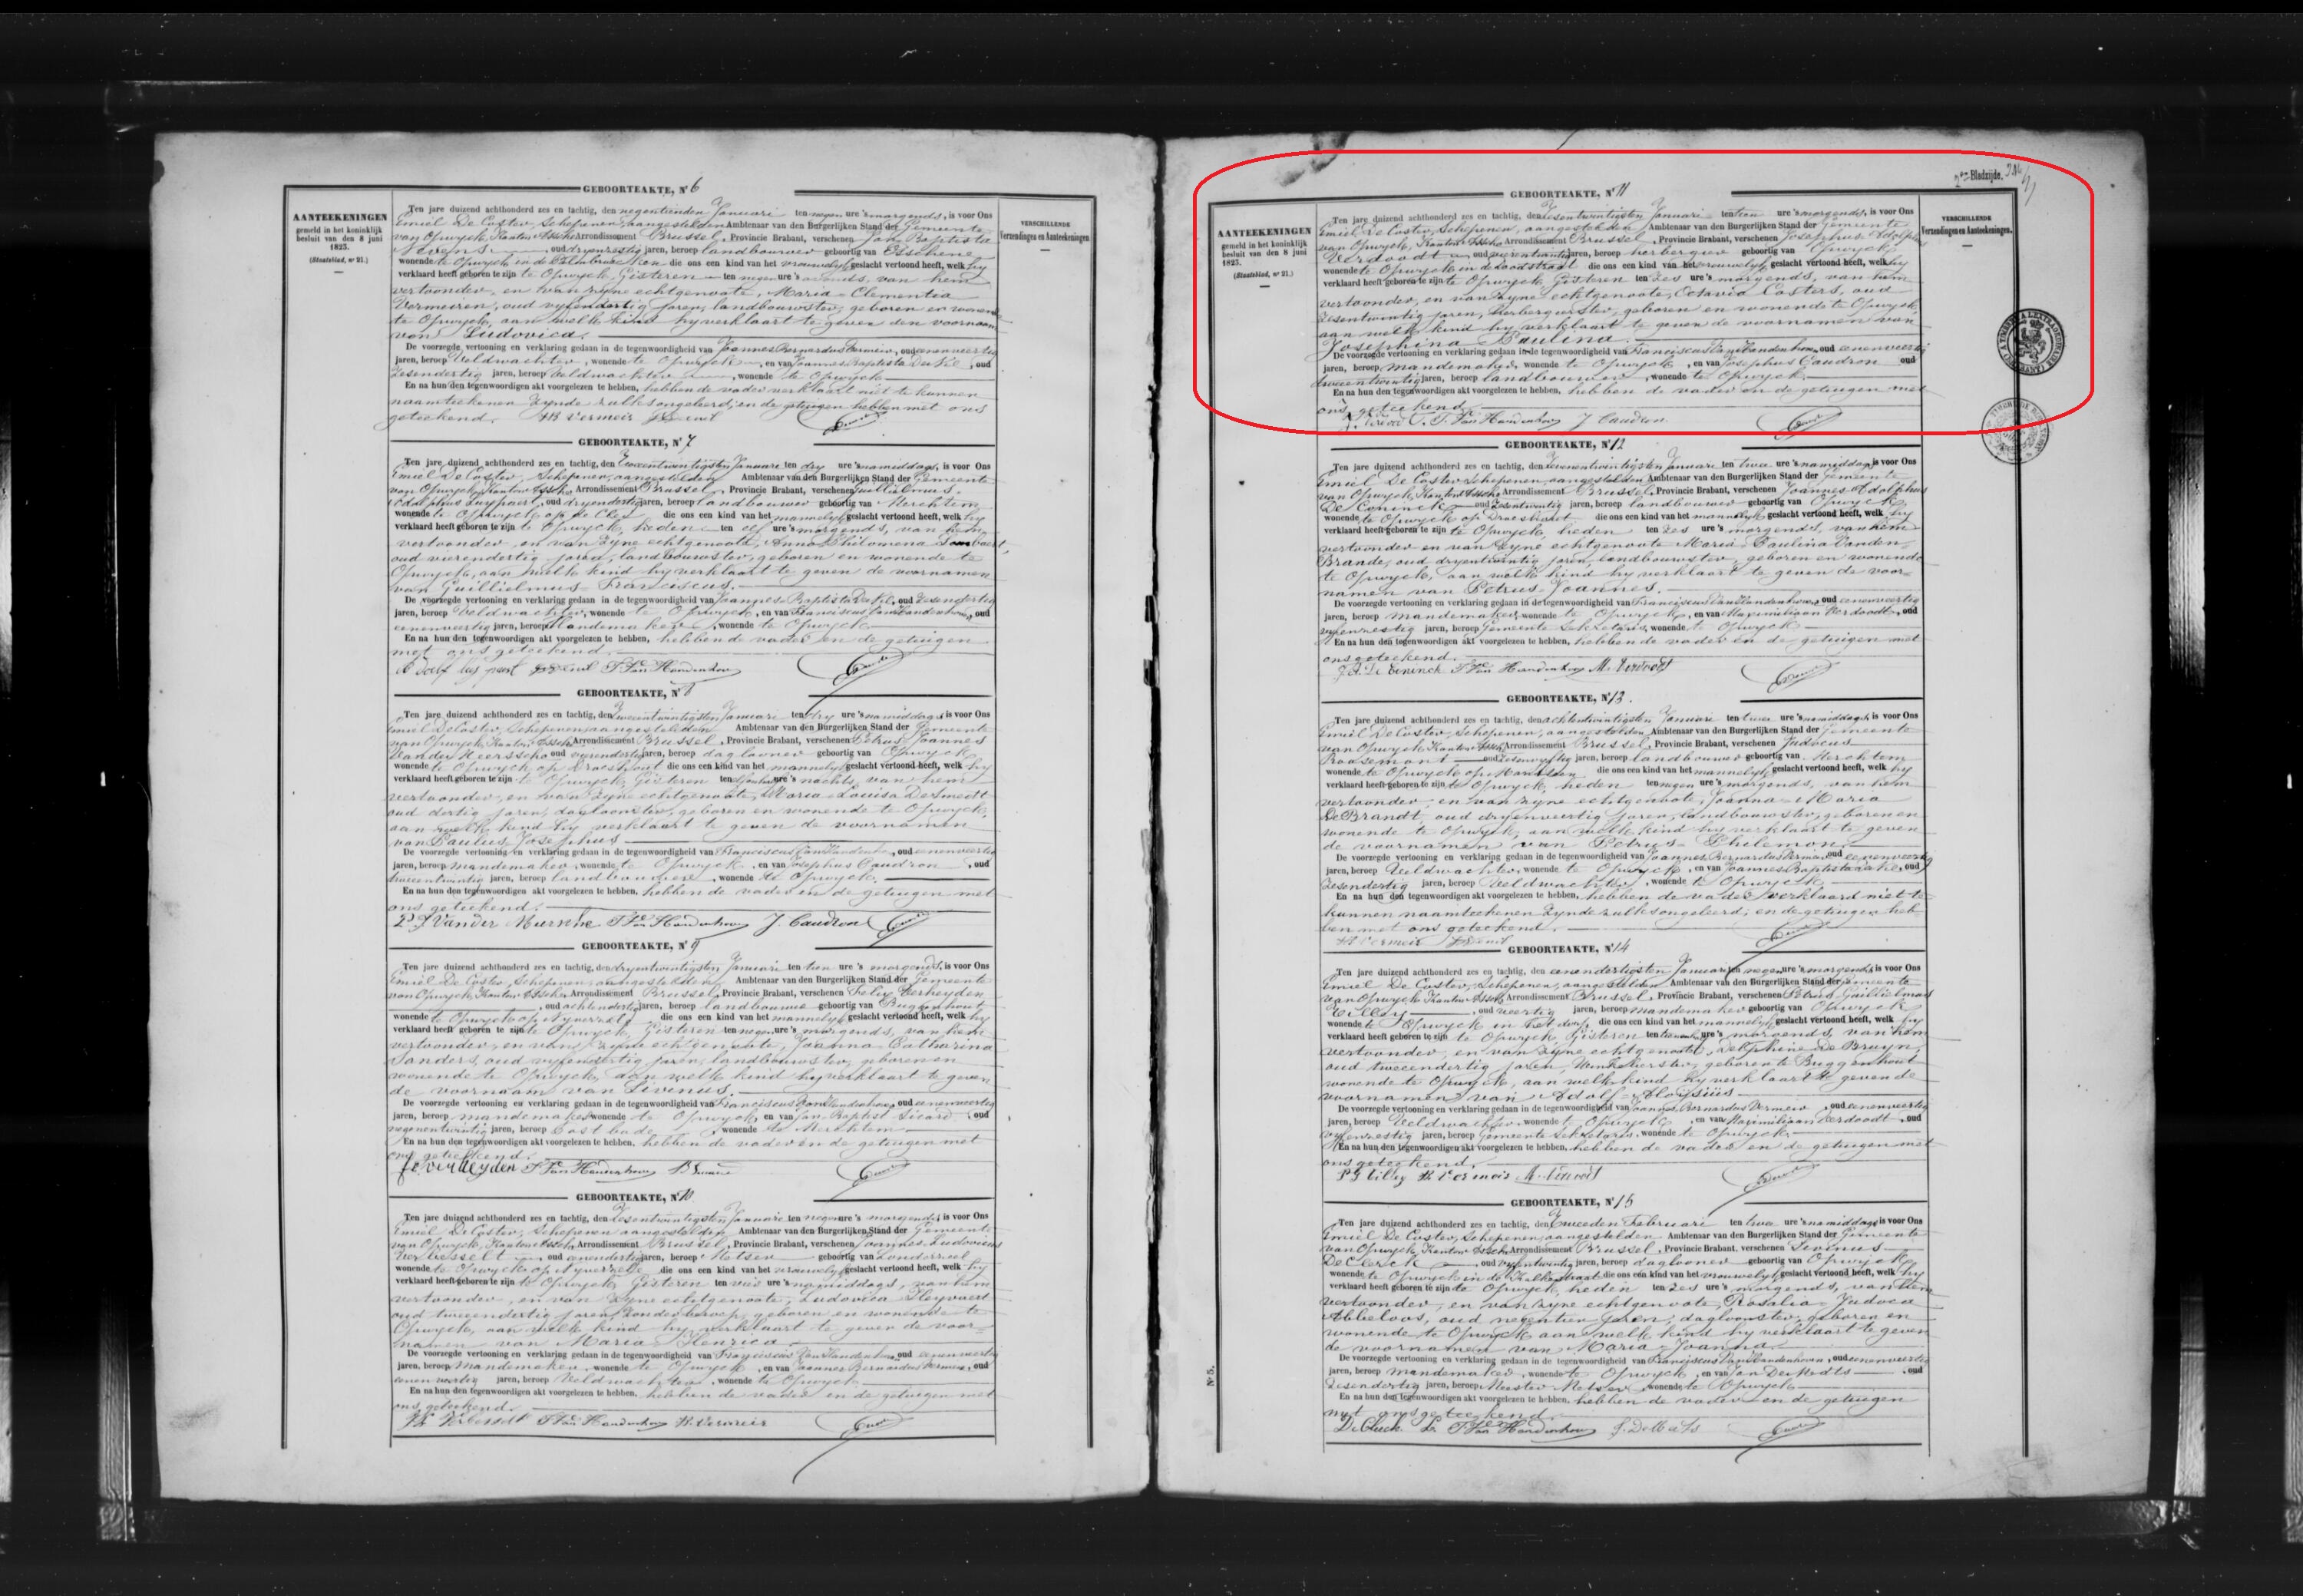 GEBOORTEAKTE, N° 6
AANTEEKENINGEN
gemeld in het koninklijk
besluit van den 8 juni
1823.
(Staatsblad, n° 21.)
VERSCHILLENDE
Verzendingen en Aanteekeningen.
Ten jare duizend achthonderd zes en tachtig, den negentienden Januari ten negen ure 's morgends, is voor Ons
Emiel De Coster, Schepenen, aangestelden Ambtenaar van den Burgerlijken Stand der Gemeente
van Opwyck, Kanton Assche Arrondissement Brussel, Provincie Brabant, verschenen Jan Baptista
oud dryenzestig jaren, beroep landbouwer geboortig van Esschene
wonende te Opwyck in de die ons een kind van het vrouwelyk geslacht vertoond heeft, welk hy
verklaart heeft geboren te zijn te Opwyck, Gisteren ten negen ure 's avonds, van hem
vertoonder, en van zyne echtgenoote, Maria Clementia
Vermeiren, oud vyfendertig jaren, landbouwster, geboren en wonende
te Opwyck, aan welk kind hy verklaart te geven den voornaam
van Ludovica.
De voorzegde vertooning en verklaring gedaan in de tegenwoordigheid van Joannes Bernardus Vermeir, oud eenenveertig
jaren, beroep Veldwachter, wonende te Opwyck, en van Joannes Baptista De Kil, oud
zesendertig jaren, beroep Veldwachter, wonende te Opwyck
En na hun den tegenwoordigen akt voorgelezen te hebben, hebben de vader verklaart niet te kunnen
naamteekenen zynde zulks ongeleerd, en de getuigen hebben met ons
geteekend.
GEBOORTEAKTE, N° 7
Ten jare duizend achthonderd zes en tachtig, den Tweeentwintigsten Januari ten dry ure 's namiddags, is voor Ons
Emiel De Coster, Schepenen, aangestelden Ambtenaar van den Burgerlijken Stand der Gemeente
van Opwyck, Kanton Assche Arrondissement Brussel, Provincie Brabant, verschenen Guillielmus
Adolphus Luypaert, oud dryendertig jaren, beroep landbouwer geboortig van Merchtem
wonende te Opwyck op de die ons een kind van het mannelyk geslacht vertoond heeft, welk hy
verklaart heeft geboren te zijn te Opwyck, heden ten elf ure 's morgends, van hem
vertoonder, en van zyne echtgenoote, Anna Philomena
oud vierendertig jaren, landbouwster, geboren en wonende te
Opwyck, aan welk kind hy verklaart te geven de voornamen
van Guillielmus Franciscus.
De voorzegde vertooning en verklaring gedaan in de tegenwoordigheid van Joannes Baptista De Kil, oud zesendertig
jaren, beroep Veldwachter, wonende te Opwyck, en van Franciscus Van Handenhove, oud
eenenveertig jaren, beroep Mandemaker, wonende te Opwyck
En na hun den tegenwoordigen akt voorgelezen te hebben, hebben de vader en de getuigen
met ons geteekend.
GEBOORTEAKTE, N° 8
Ten jare duizend achthonderd zes en tachtig, den Tweeentwintigsten Januari ten dry ure 's namiddags, is voor Ons
Emiel De Coster, Schepenen, aangestelden Ambtenaar van den Burgerlijken Stand der Gemeente
van Opwyck, Kanton Assche Arrondissement Brussel, Provincie Brabant, verschenen Petrus Joannes
oud vierendertig jaren, beroep daglooner geboortig van Opwyck
wonende te Opwyck op Droeshout die ons een kind van het mannelyk geslacht vertoond heeft, welk hy
verklaart heeft geboren te zijn te Opwyck, Gisteren ten ure 's nachts, van hem
vertoonder, en van zyne echtgenoote, Maria Louisa De Smedt
oud dertig jaren, dagloonster, geboren en wonende te Opwyck,
aan welk kind hy verklaart te geven de voornamen
van Paulus Josephus
De voorzegde vertooning en verklaring gedaan in de tegenwoordigheid van Franciscus Van Handenhove, oud eenenveertig
jaren, beroep mandemaker, wonende te Opwyck, en van Josephus Caudron, oud
tweeentwintig jaren, beroep landbouwer, wonende te Opwyck.
En na hun den tegenwoordigen akt voorgelezen te hebben, hebben de vader en de getuigen met
ons geteekend.
J. Caudron
GEBOORTEAKTE, N° 9
Ten jare duizend achthonderd zes en tachtig, den dryentwintigsten Januari ten tien ure 's morgends, is voor Ons
Emiel De Coster, Schepenen, aangestelden Ambtenaar van den Burgerlijken Stand der Gemeente
van Opwyck, Kanton Assche Arrondissement Brussel, Provincie Brabant, verschenen Felix Verheyden
oud achtendertig jaren, beroep landbouwer geboortig van Buggenhout
wonende te Opwyck op Nyverzeel, die ons een kind van het mannelyk geslacht vertoond heeft, welk hy
verklaart heeft geboren te zijn te Opwyck, Gisteren ten negen ure 's morgends, van hem
vertoonder, en van zyne echtgenoote, Joanna Catharina
Sanders, oud vyfendertig jaren, landbouwster, geboren en
wonende te Opwyck, aan welk kind hy verklaart te geven
de voornaam van Livinus.
De voorzegde vertooning en verklaring gedaan in de tegenwoordigheid van Franciscus Van Handenhove, oud eenenveertig
jaren, beroep mandemaker wonende te Opwyck, en van Jan Baptist Sicard, oud
negenentwintig jaren, beroep wonende te Merchtem
En na hun den tegenwoordigen akt voorgelezen te hebben, hebben de vader en de getuigen met
ons geteekend.
F. Verheyden
GEBOORTEAKTE, N° 10
Ten jare duizend achthonderd zes en tachtig, den Zesentwintigsten Januari ten negen ure 's morgends, is voor Ons
Emiel De Coster, Schepenen aangestelden Ambtenaar van den Burgerlijken Stand der Gemeente
van Opwyck, Kanton Assche Arrondissement Brussel, Provincie Brabant, verschenen Joannes Ludovicus
Verbesselt oud eenendertig jaren, beroep Metser geboortig van Londerzeel
wonende te Opwyck op Nyverzeele die ons een kind van het vrouwelyk geslacht vertoond heeft, welk hy
verklaart heeft geboren te zijn te Opwyck, Gisteren ten vier ure 's namiddags, van hem
vertoonder, en van zyne echtgenoote, Ludovica Heyvaert
oud tweeendertig jaren, zonder beroep, geboren en wonende te
Opwyck, aan welk kind hy verklaart te geven de voor-
namen van Maria Henrica.
De voorzegde vertooning en verklaring gedaan in de tegenwoordigheid van Franciscus Van Handenhove, oud eenenveertig
jaren, beroep Mandemaker, wonende te Opwyck, en van Joannes Bernardus Vermeir, oud
eenenveertig jaren, beroep Veldwachter, wonende te Opwyck
En na hun den tegenwoordigen akt voorgelezen te hebben, hebben de vader en de getuigen met
ons geteekend.
2de Bladzijde.
GEBOORTEAKTE, N° 11
AANTEEKENINGEN
gemeld in het koninklijk
besluit van den 8 juni
1823.
(Staatsblad, n° 21.)
VERSCHILLENDE
Verzendingen en Aanteekeningen.
Ten jare duizend achthonderd zes en tachtig, den Zesentwintigsten Januari ten tien ure 's morgends, is voor Ons
Emiel De Coster, Schepenen, aangestelden Ambtenaar van den Burgerlijken Stand der Gemeente
van Opwyck, Kanton Assche Arrondissement Brussel, Provincie Brabant, verschenen Josephus Adolphus
Verdoodt oud jaren, beroep herbergier geboortig van Opwyck
wonende te Opwyck in de die ons een kind van het vrouwelyk geslacht vertoond heeft, welk hy
verklaart heeft geboren te zijn te Opwyck, Gisteren ten zes ure 's morgends, van hem
vertoonder, en van zyne echtgenoote, Octavia Costers, oud
zesentwintig jaren, Herbergierster, geboren en wonende te Opwyck,
aan welk kind hy verklaart te geven de voornamen van
Josephina Paulina.
De voorzegde vertooning en verklaring gedaan in de tegenwoordigheid van Franciscus Van Handenhove, oud eenenveertig
jaren, beroep mandemaker, wonende te Opwyck, en van Josephus Caudron oud
tweeentwintig jaren, beroep landbouwer, wonende te Opwyck.
En na hun den tegenwoordigen akt voorgelezen te hebben, hebben de vader en de getuigen met
ons geteekend.
J. Caudron
GEBOORTEAKTE, N° 12
Ten jare duizend achthonderd zes en tachtig, den Zevenentwintigsten Januari ten twee ure 's namiddags, is voor Ons
Emiel De Coster, Schepenen, aangestelden Ambtenaar van den Burgerlijken Stand der Gemeente
van Opwyck, Kanton Assche Arrondissement Brussel, Provincie Brabant, verschenen Joannes Adolphus
De Coninck oud Zesentwintig jaren, beroep landbouwer geboortig van Opwyck
wonende te Opwyck op Droeshout die ons een kind van het mannelyk geslacht vertoond heeft, welk hy
verklaart heeft geboren te zijn te Opwyck, heden ten zes ure 's morgends, van hem
vertoonder en van zyne echtgenoote Maria Paulina Vanden
Brande, oud dryentwintig jaren, landbouwster, geboren en wonende
te Opwyck, aan welk kind hy verklaart te geven de voor-
namen van Petrus Joannes.
De voorzegde vertooning en verklaring gedaan in de tegenwoordigheid van Franciscus Van Handenhove, oud eenenveertig
jaren, beroep mandemaker, wonende te Opwyck, en van Maximiliaan Verdoodt, oud
vyfenzestig jaren, beroep Gemeente Sekretaris, wonende te Opwyck
En na hun den tegenwoordigen akt voorgelezen te hebben, hebben de vader en de getuigen met
ons geteekend.
J. A. De Coninck M. Verdoodt
GEBOORTEAKTE, N° 13.
Ten jare duizend achthonderd zes en tachtig, den achtentwintigsten Januari ten twee ure 's namiddags, is voor Ons
Emiel De Coster, Schepenen, aangestelden Ambtenaar van den Burgerlijken Stand der Gemeente
van Opwyck, Kanton Assche Arrondissement Brussel, Provincie Brabant, verschenen Judocus
oud Zesenvyftig jaren, beroep landbouwer geboortig van Merchtem
wonende te Opwyck op die ons een kind van het mannelyk geslacht vertoond heeft, welk hy
verklaart heeft geboren te zijn te Opwyck, heden ten negen ure 's morgends, van hem
vertoonder en van zyne echtgenoote, Joanna Maria
De Brandt, oud dryenveertig jaren, landbouwster, geboren en
wonende te Opwyck, aan welk kind hy verklaart te geven
de voornamen van Petrus Philemon.
De voorzegde vertooning en verklaring gedaan in de tegenwoordigheid van Joannes Bernardus Vermeir, oud eenenveertig
jaren, beroep Veldwachter, wonende te Opwyck, en van Joannes Baptista De Kil, oud
zesendertig jaren, beroep Veldwachter, wonende te Opwyck
En na hun den tegenwoordigen akt voorgelezen te hebben, hebben de vader verklaard niet te
kunnen naamteekenen zynde zulks ongeleerd, en de getuigen heb-
ben met ons geteekend.
GEBOORTEAKTE, N° 14
Ten jare duizend achthonderd zes en tachtig, den eenendertigsten Januari ten negen ure 's morgends, is voor Ons
Emiel De Coster, Schepenen, aangestelden Ambtenaar van den Burgerlijken Stand der Gemeente
van Opwyck, Kanton Assche Arrondissement Brussel, Provincie Brabant, verschenen Petrus Guillielmus
Tilley, oud veertig jaren, beroep mandemaker geboortig van Opwyck
wonende te Opwyck in het dorp, die ons een kind van het mannelyk geslacht vertoond heeft, welk hy
verklaart heeft geboren te zijn te Opwyck Gisteren ten ure 's morgends, van hem
vertoonder, en van zyne echtgenoote, Delphine De Bruyn,
oud tweeendertig jaren, Winkelierster, geboren te Buggenhout
wonende te Opwyck, aan welk kind hy verklaart te geven de
voornamen van Adolf Aloysius
De voorzegde vertooning en verklaring gedaan in de tegenwoordigheid van Joannes Bernardus Vermeir, oud eenenveertig
jaren, beroep Veldwachter, wonende te Opwyck, en van Maximiliaan Verdoodt, oud
vyfenzestig jaren, beroep Gemeente Sekretaris, wonende te Opwyck
En na hun den tegenwoordigen akt voorgelezen te hebben, hebben de vader en de getuigen met
ons geteekend.
GEBOORTEAKTE, N° 15
Ten jare duizend achthonderd zes en tachtig, den Tweeden Februari ten twee ure 's namiddags, is voor Ons
Emiel De Coster, Schepenen, aangestelden Ambtenaar van den Burgerlijken Stand der Gemeente
van Opwyck, Kanton Assche Arrondissement Brussel, Provincie Brabant, verschenen Livinus
De Clerck, oud vyfentwintig jaren, beroep daglooner geboortig van Opwyck
wonende te Opwyck in de Kalkestraat die ons een kind van het vrouwelyk geslacht vertoond heeft, welk hy
verklaart heeft geboren te zijn te Opwyck, heden ten zes ure 's morgends, van hem
vertoonder, en van zyne echtgenoote, Rosalia Judoca
Abbeloos, oud negentien jaren, dagloonster, geboren en
wonende te Opwyck aan welk kind hy verklaart te geven
de voornamen van Maria Joanna.
De voorzegde vertooning en verklaring gedaan in de tegenwoordigheid van Franciscus Van Handenhove, oud eenenveertig
jaren, beroep mandemaker, wonende te Opwyck, en van oud
zesendertig jaren, beroep Meester Metser, wonende te Opwyck
En na hun den tegenwoordigen akt voorgelezen te hebben, hebben de vader en de getuigen
met ons geteekend.
N° 5.